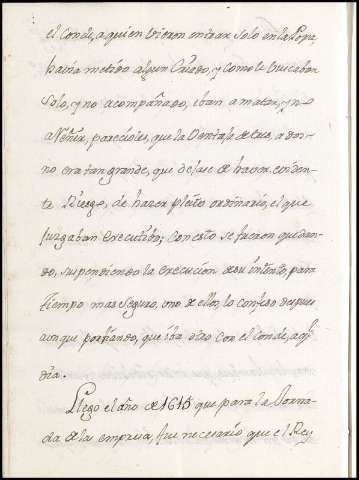 el Conde, a quien vieron entrar solo en la Popa,
havia metido algun Criado, y como le buscaban
solo, y no acompañado, iban a matar, y no
a Reñir, pareciòles, que la Ventaja de tres, a dos
no era tan grande, que dejase de haver eviden-
te Riesgo, de hazer pleito ordinario, el que
juzgaban executibo; Con esto se fueron quedan-
do, suspendiendo la execucion de su intento, para
tiempo mas seguro, uno de ellos, lo confeso despues
aunque porfiando, que iba otro con el Conde, aql
dia.
Llego el año de 1615 que para la Jorna-
da de la empresa, fue necesario que el Rey